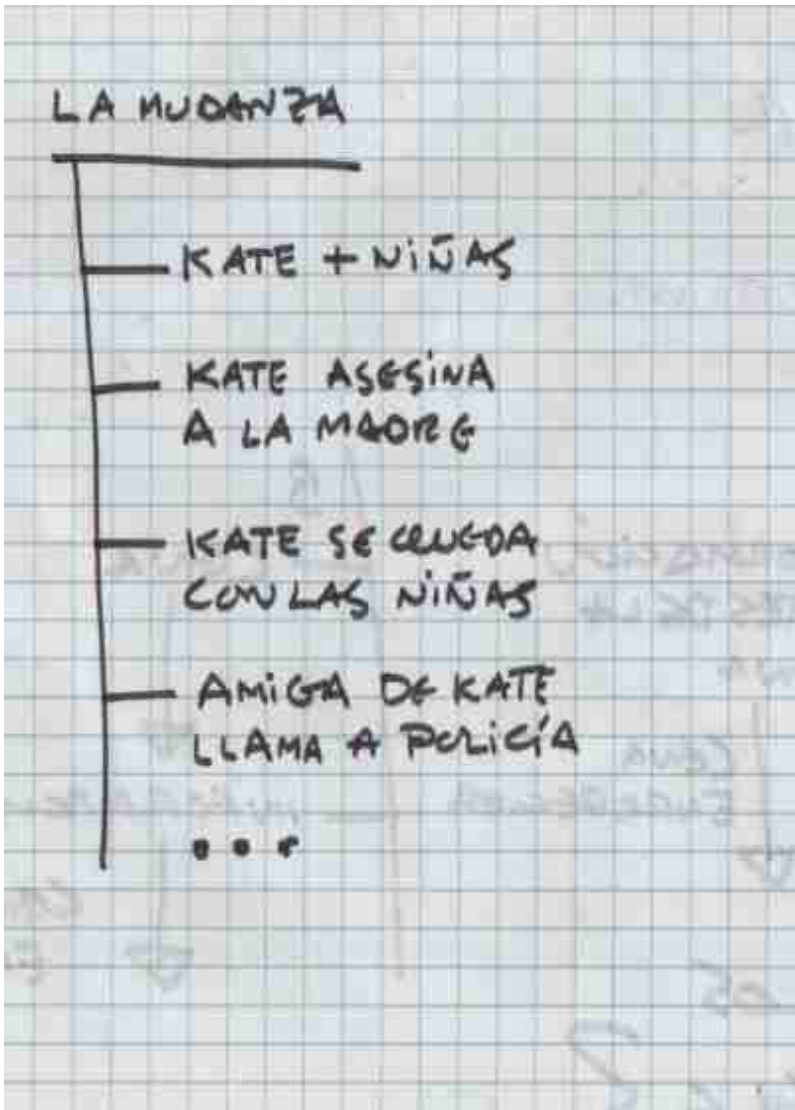 LA MUDANZA
KATE + NIÑAS
KATE ASESINA
A LA MADRE
KATE SE QUEDA
CON LAS NIÑAS
AMIGA DE KATE
LLAMA A POLICÍA
...